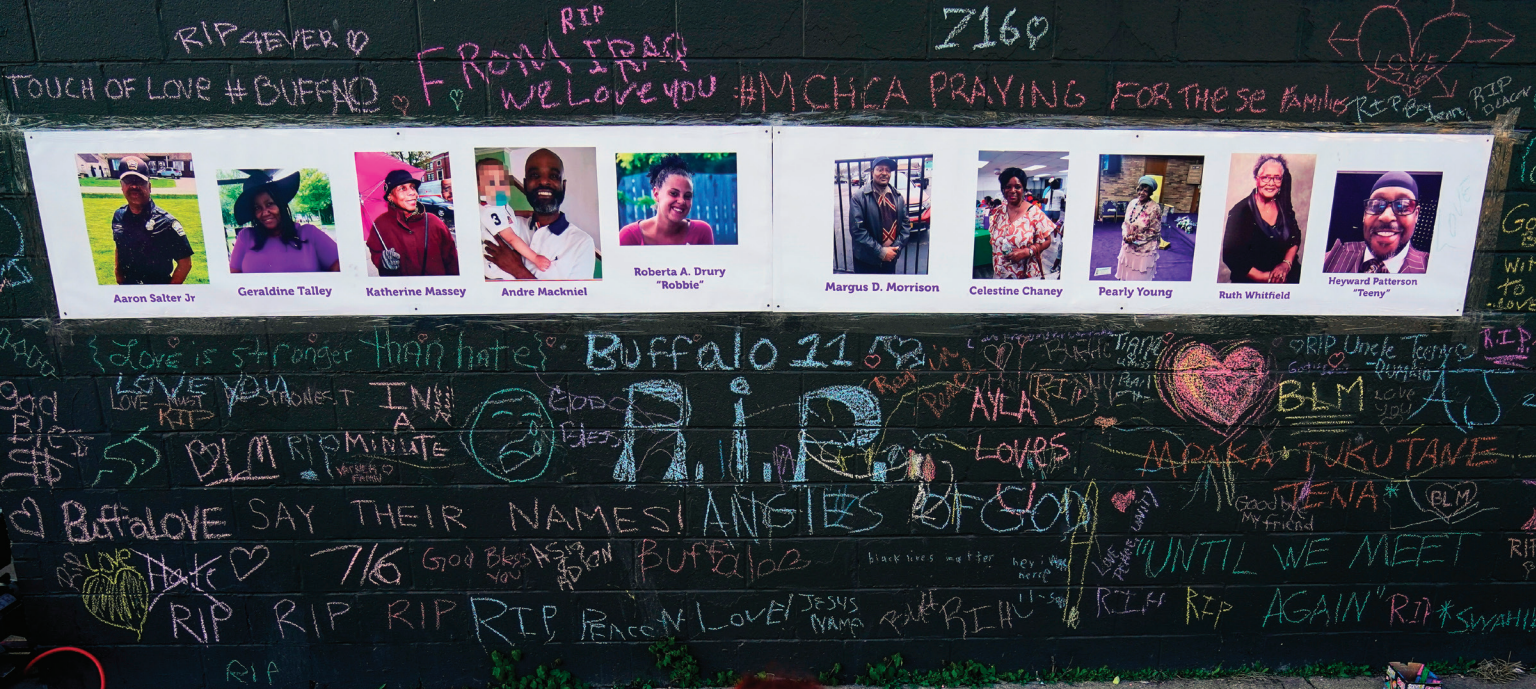 RIP
RIP 4EVER
716
FROM IRAQ
LOVE
716
TOUCH OF LOVE #BUFFALO
WE LOVE YOU
#MCHCA PRAYING FOR THESE FAMILIES
RIP
DEACON
Aaron Salter Jr
Geraldine Talley
Katherine Massey
Andre Mackniel
Roberta A. Drury
"Robbie"
Margus D. Morrison
Celestine Chaney
Pearly Young
Ruth Whitfield
Heyward Patterson
"Teeny"
{Love is stronger than hate}
Buffalo 11
RIP Uncle Teeny
R.I.P.
LOVE YOU
LOVE
RIP
IN
A
MINUTE
GOD
Bless
R.i.P.
AYLA
LOVES
BLM
LOVE
YOU
AJ
BLM
RIP
MPAKA TUKUTANE
TENA*
BuffaLOVE
SAY THEIR NAMES!
ANGLES OF GOD
Goodbye
My friend
BLM
LOVE
Hate
716
God Bless
You
Buffalo
black lives matter
LOVE
PEACE
UNITY
"UNTIL WE MEET
RIP
RIP
RIP
RIP,
Peace N Love!
JESUS
NAME
RIP
AGAIN"
RIP
*SWAHILI
RIP